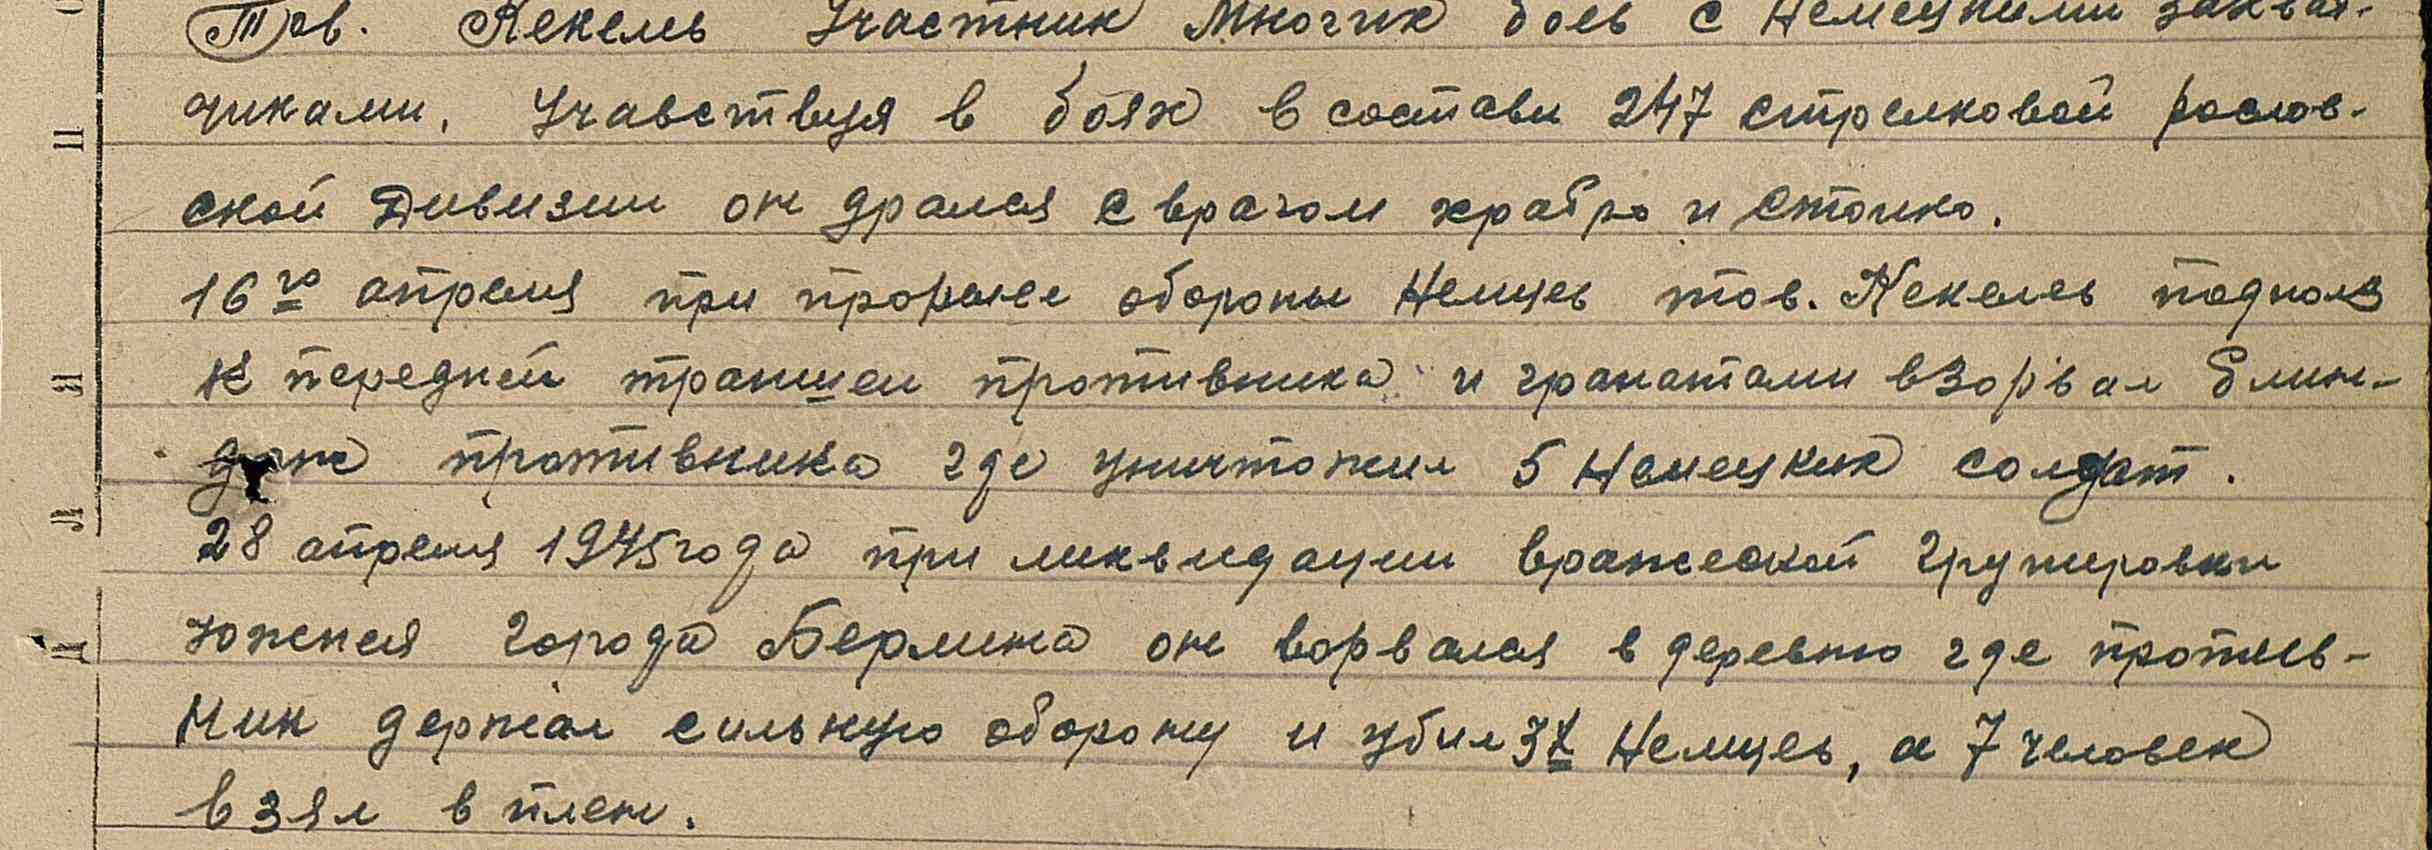 Тов. Кекель Участник многих боев с немецкими захват-
чиками. Учавствуя в боях в составе 247 стрелковой рослов-
ской Дивизии он дрался с врагом храбро и стойко.
16го апреля при прорыве обороны Немцев тов. Кекель подполз
к передней траншеи противника и гранатами взорвал блин-
даж противника где уничтожил 5 Немецких солдат.
28 апреля 1945 года при ликвидации вражеской групировки
южнея города Берлина он ворвался в деревню где против-
ник держал сильную оборону и убил 3х Немцев, а 7 человек
взял в плен.